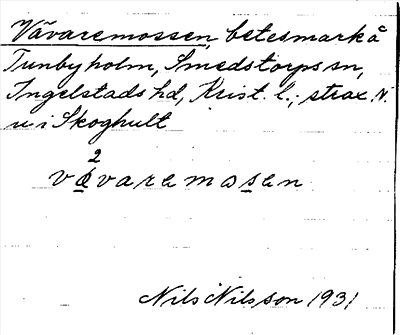 Vävaremossen, betesmark å
Tunbyholm, Smedstorps sn,
Ingelstads hd, Krist. l.; strax N.
u i Skoghult
2
vävaremosen
Nils Nilsson 1931